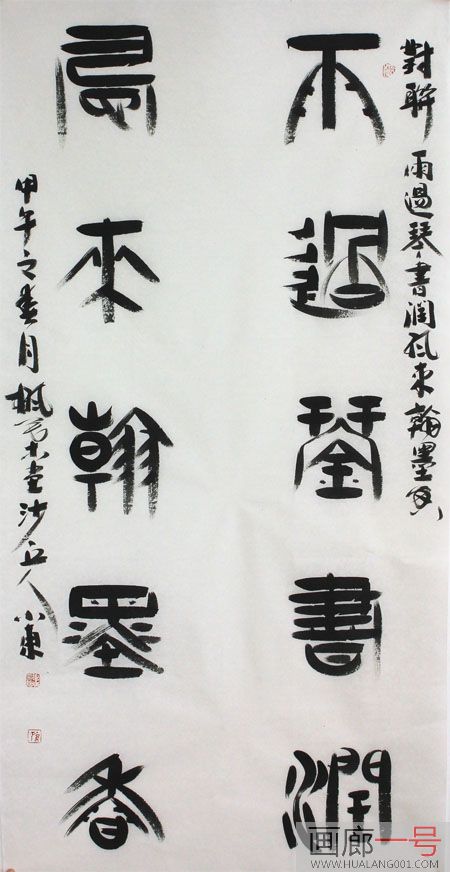 對聯 雨過琴書潤風來翰墨香
雨過琴書潤
風來翰墨香
甲午之春月楓 堂沙丘人小東
画廊一号
WWW.HUALANG001.COM